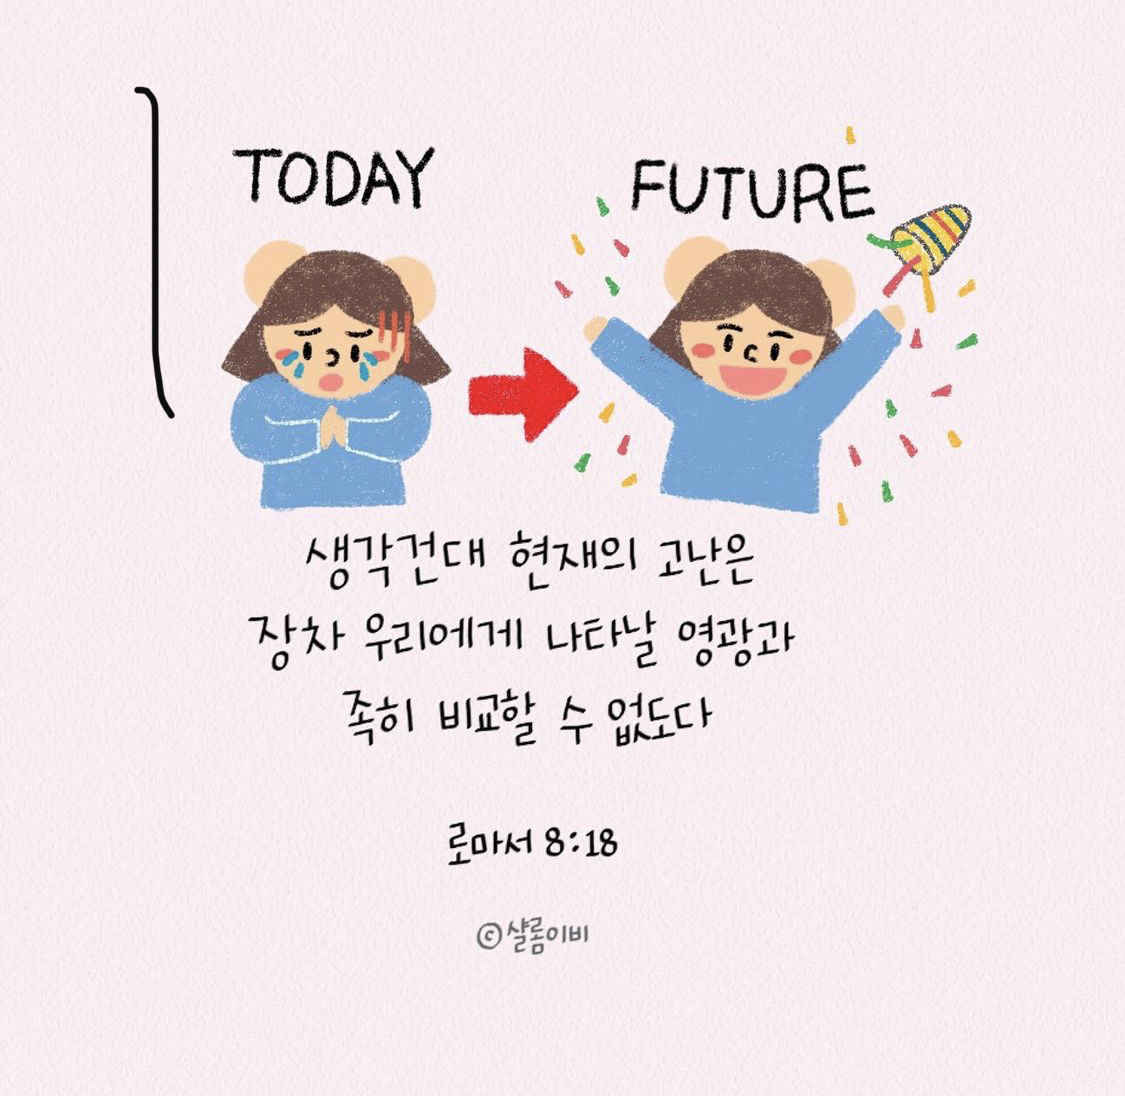 TODAY
FUTURE
생각건대 현재의 고난은
장차 우리에게 나타날 영광과
족히 비교할 수 없도다
로마서 8:18
©샬롬이비